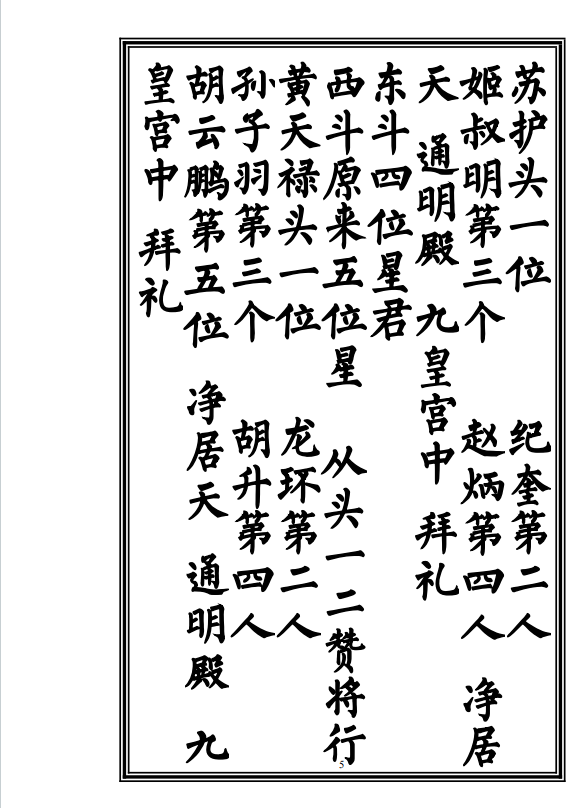 苏护头一位 纪奎第二人
姬叔明第三个 赵炳第四人 净居
天 通明殿 九皇宫中 拜礼
东斗四位星君
西斗原来五位星 从头一二赞将行
黄天禄头一位 龙环第二人
孙子羽第三个 胡升第四人
胡云鹏第五位 净居天 通明殿 九
皇宫中 拜礼
5